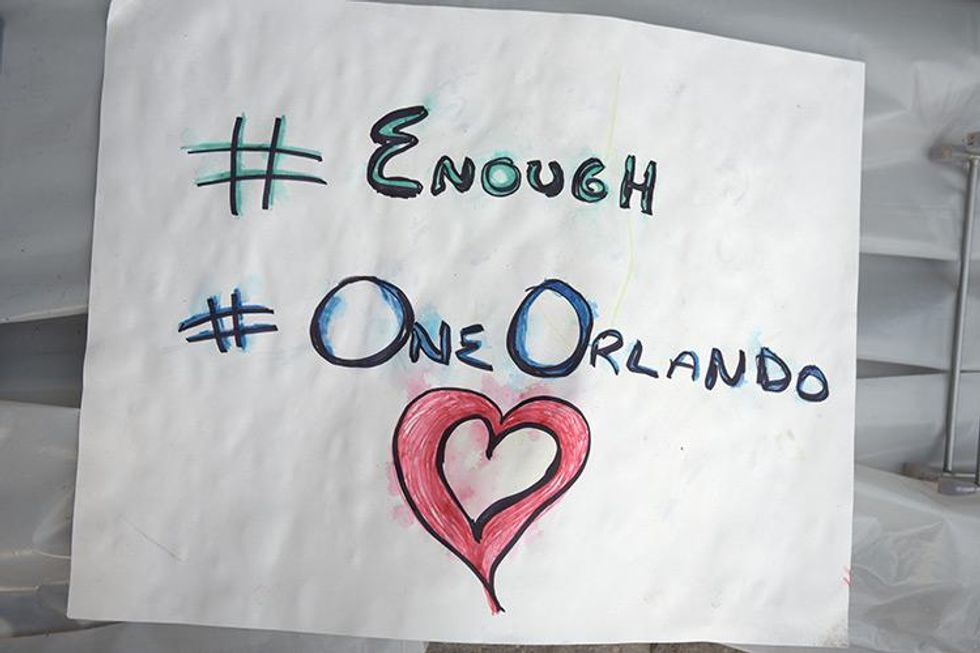 # Enough
# OneOrlando